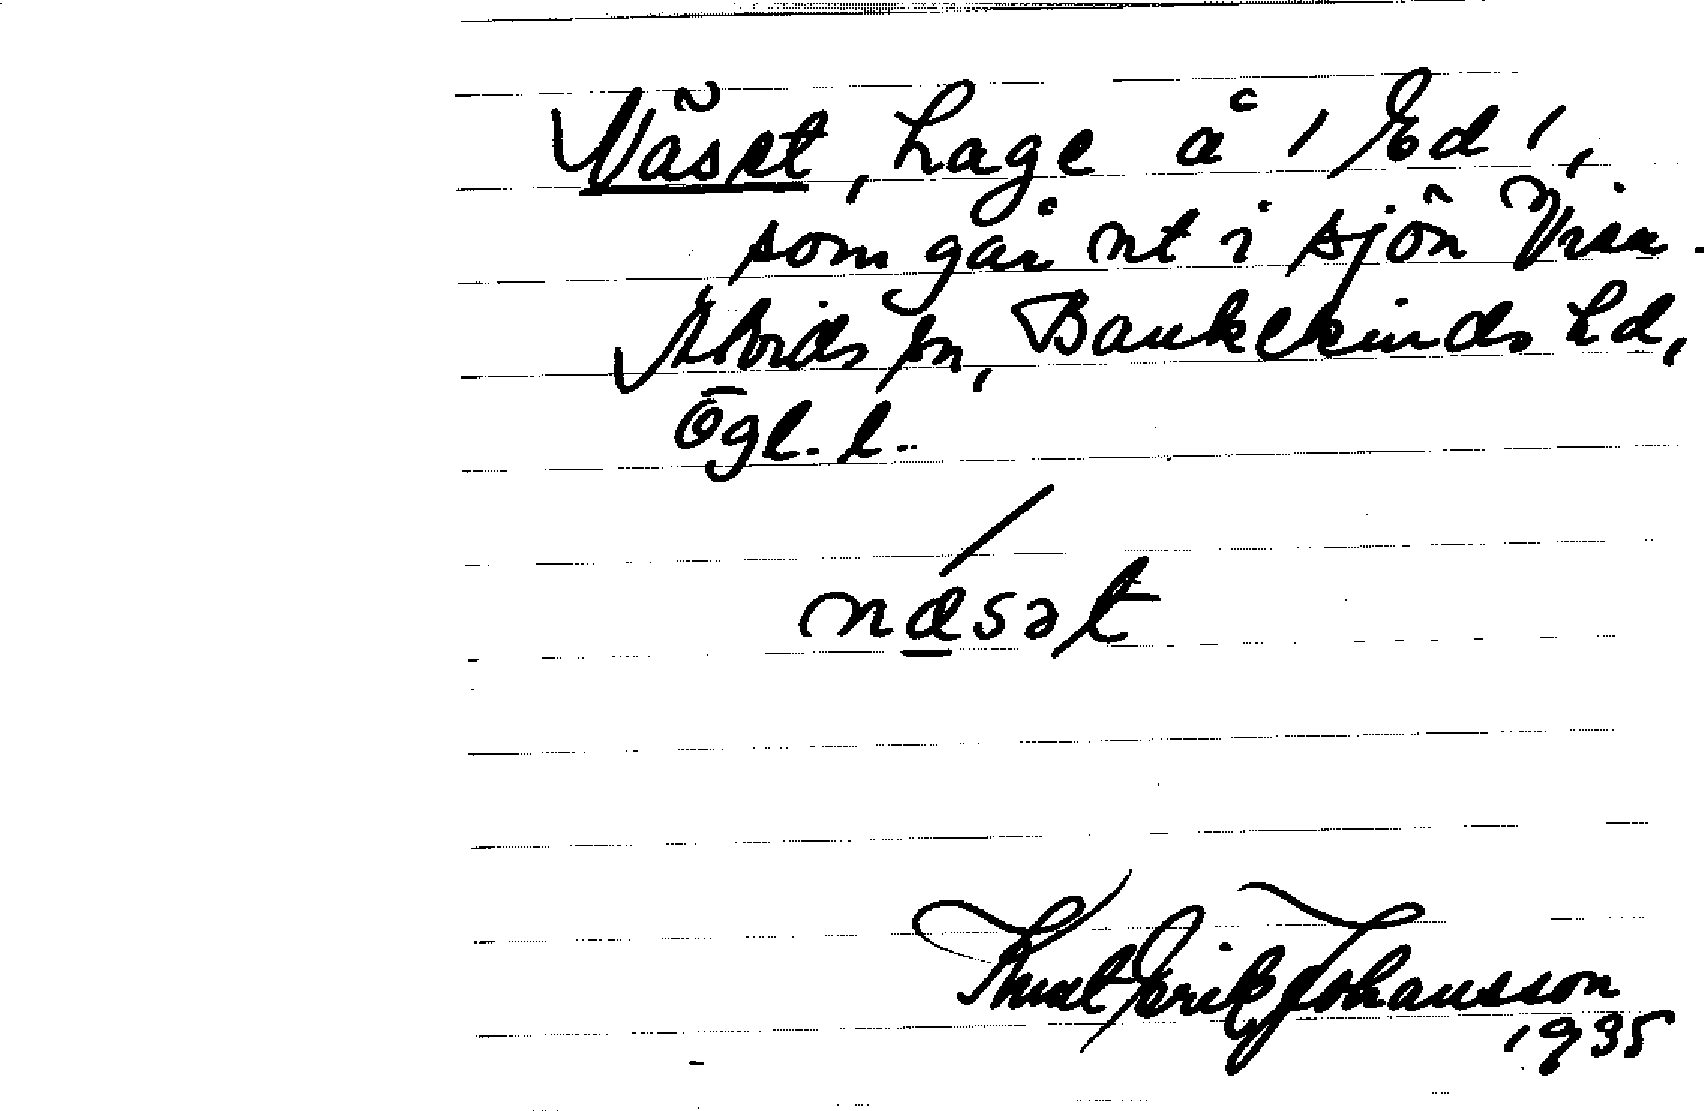 Näset, hage å 1 Ed 1,
som går ut i sjön
Åtvids sn, Bankekinds hd,
Ögl. l.
næsət
Knut Erik Johansson
1935